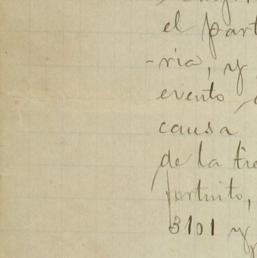 el part
-ria, y
evento
causa
de la tie
fortuito,
3101 y